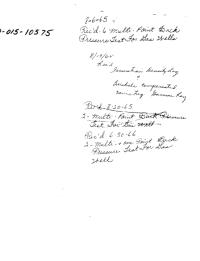 0-015-10575
7-6-65
Rec'd 6 Multi-Point Back
Pressure Test For Gas Wells
8/9/65
Rec'd
Formation Density Log
&
Borehole Compensated
Sonic Log Gamma Ray
Rec'd 8-20-65
2-Multi-Point Back Pressure
Test For Gas Well
Rec'd 6-30-66
2-Multi- & one Point Back
Pressure Test For Gas
Well